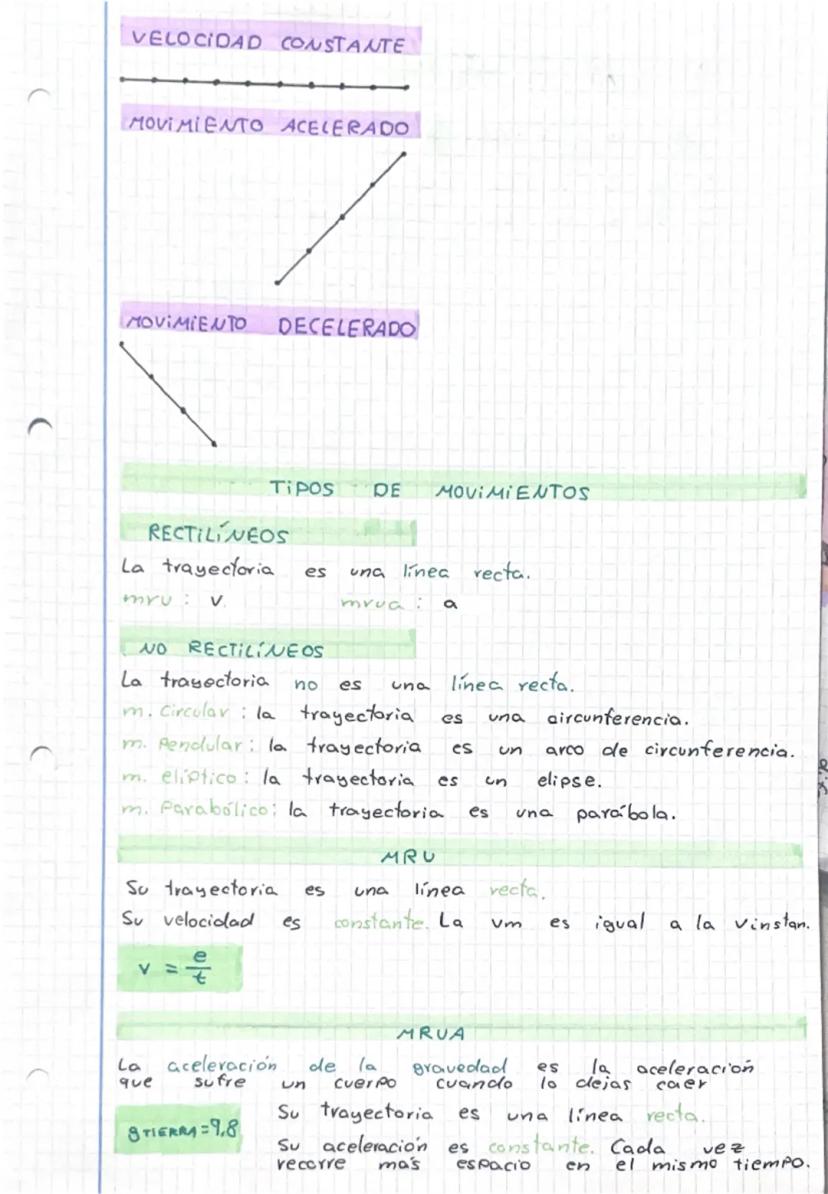 VELOCIDAD CONSTANTE
MOVIMIENTO ACELERADO
MOVIMIENTO DECELERADO
TIPOS DE MOVIMIENTOS
RECTILÍNEOS
La trayectoria es una línea recta.
mru : v. mrua : a
NO RECTILÍNEOS
La trayectoria no es una línea recta.
m. Circular : la trayectoria es una circunferencia.
m. Pendular : la trayectoria es un arco de circunferencia.
m. elíptico : la trayectoria es un elipse.
m. Parabólico : la trayectoria es una parábola.
MRU
Su trayectoria es una línea recta.
Su velocidad es constante. La vm es igual a la vinstan.
v = e/t
MRUA
La aceleración de la gravedad es la aceleración
que sufre un cuerpo cuando lo dejas caer
g TIERRA = 9,8
Su trayectoria es una línea recta.
Su aceleración es constante. Cada vez
recorre más espacio en el mismo tiempo.